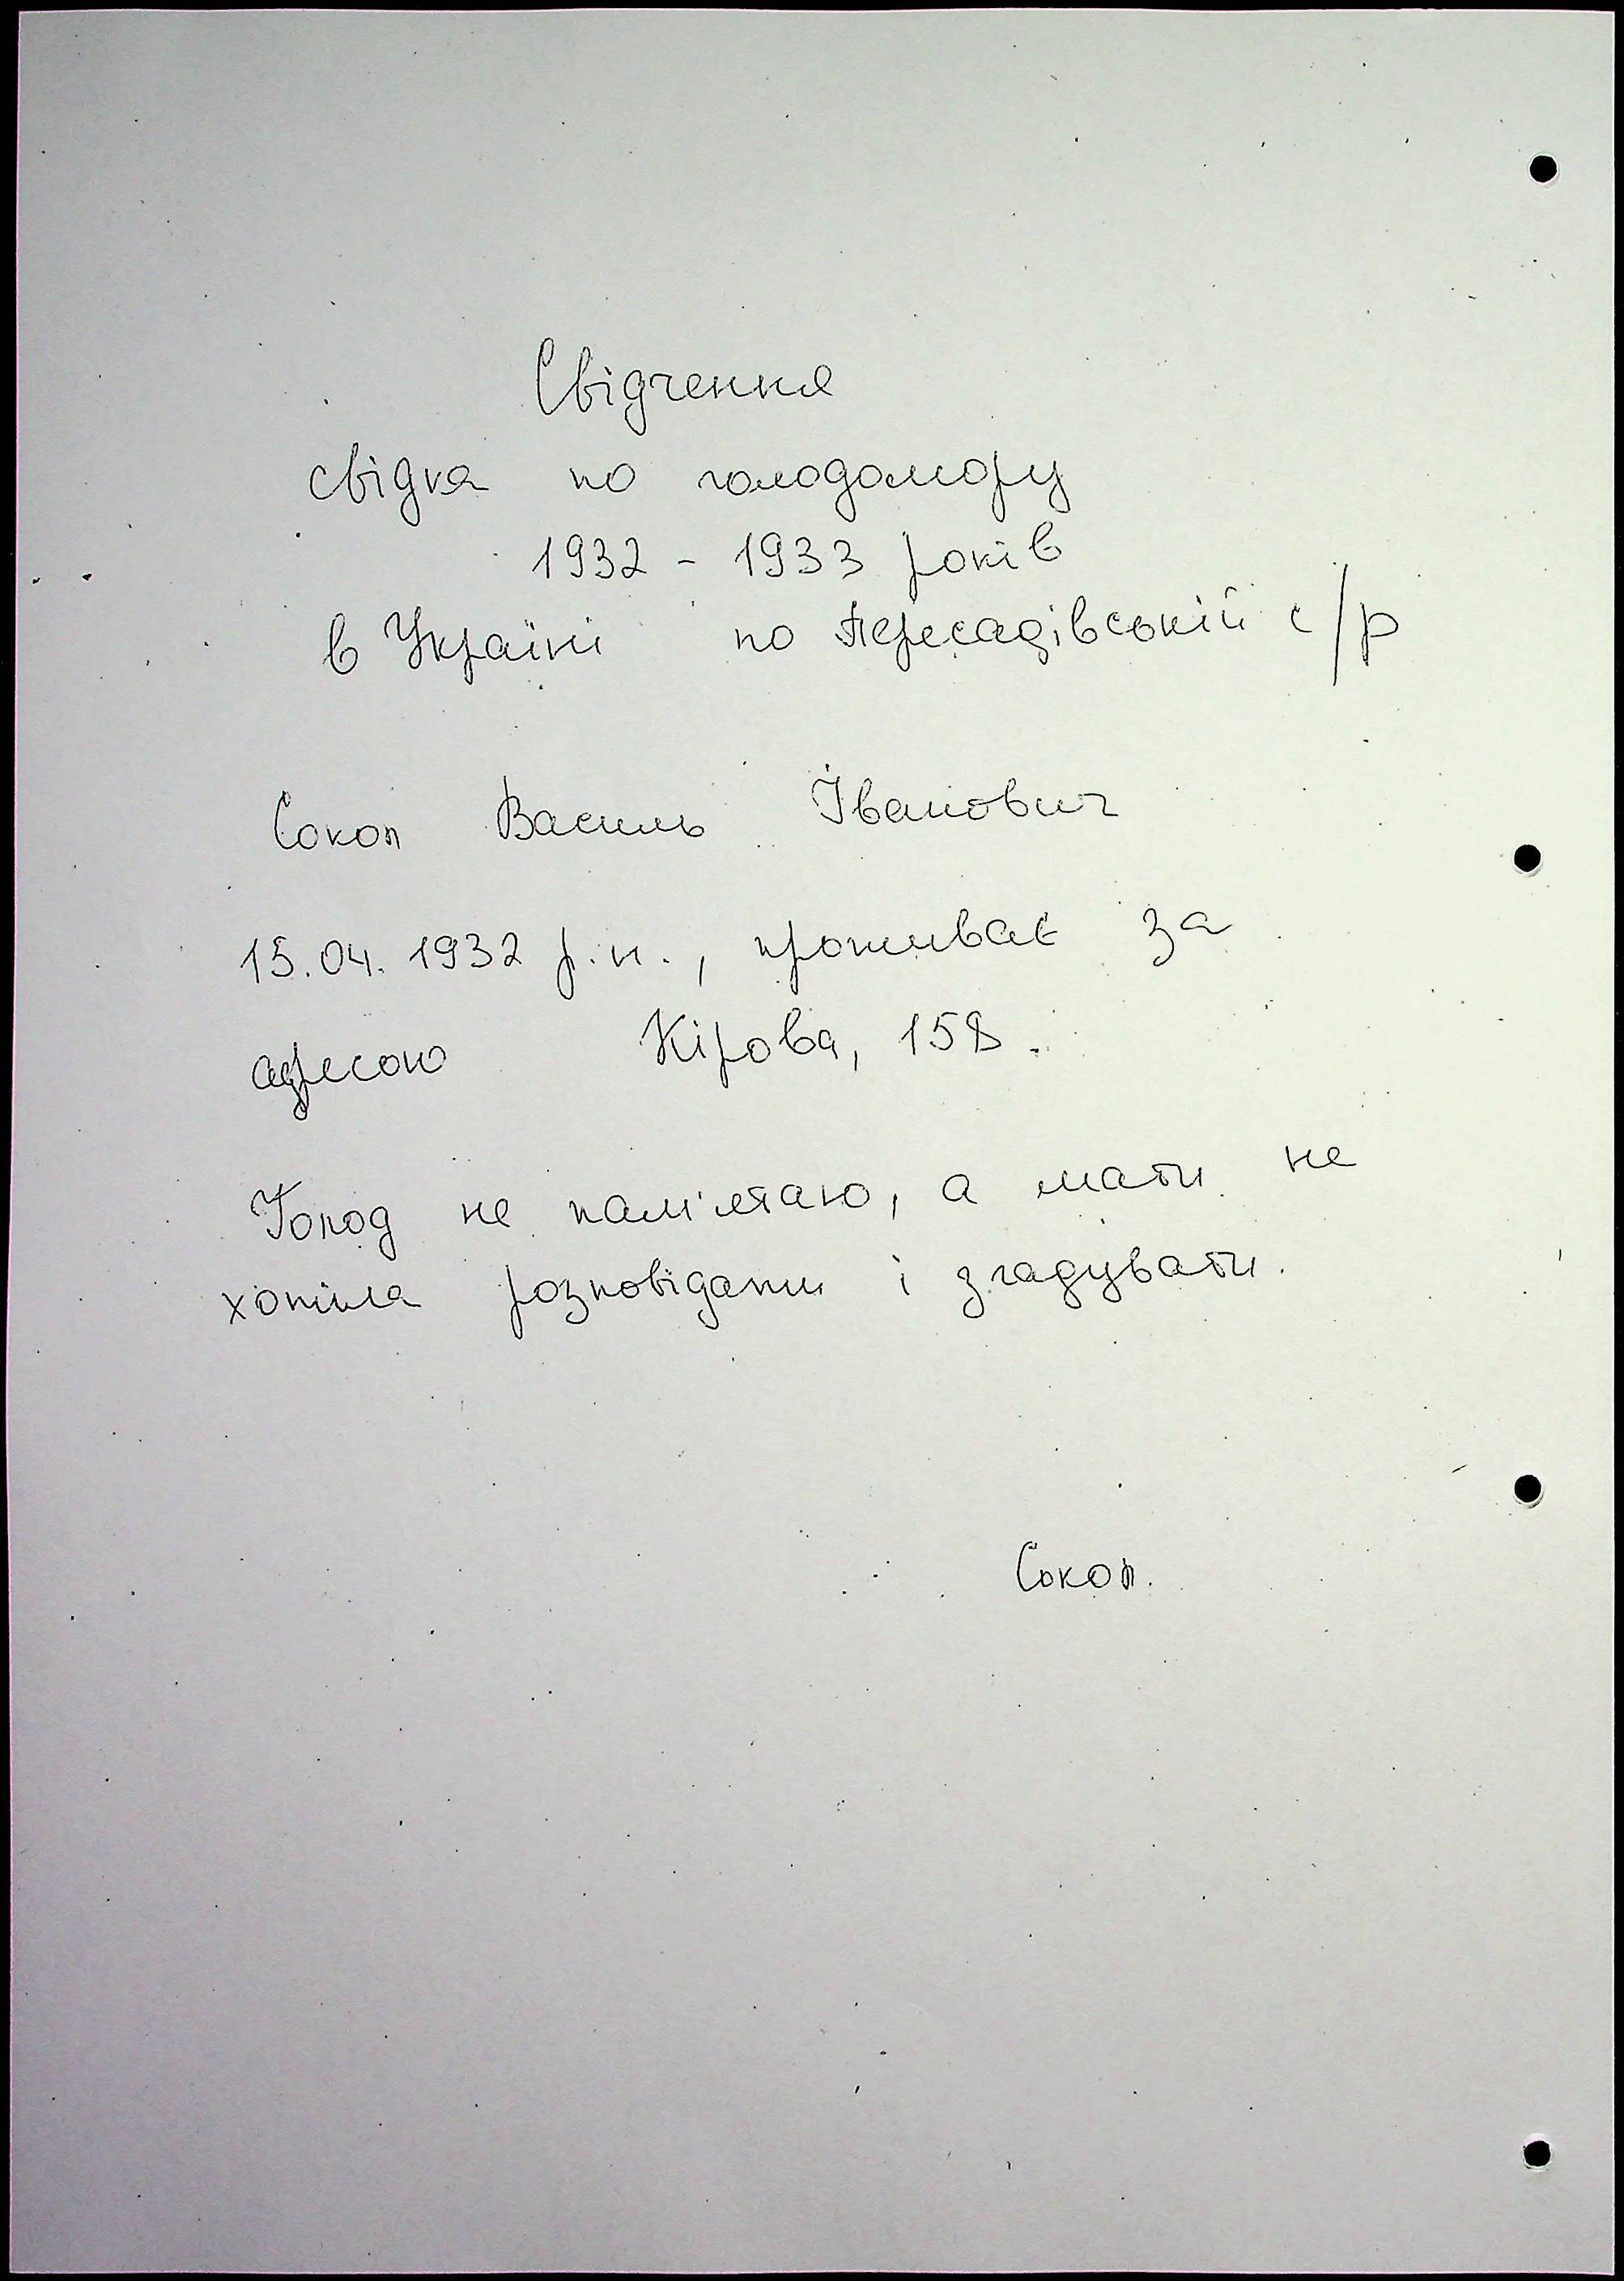 Свідчення
свідка по голодомору
1932 - 1933 років
в Україні по Пересадівській с/р
Сокол Василь Іванович
15.04.1932 р.н., проживає за
адресою Кірова, 158.
Голод не пам'ятаю, а мати не
хотіла розповідати і згадувати.
Сокол.